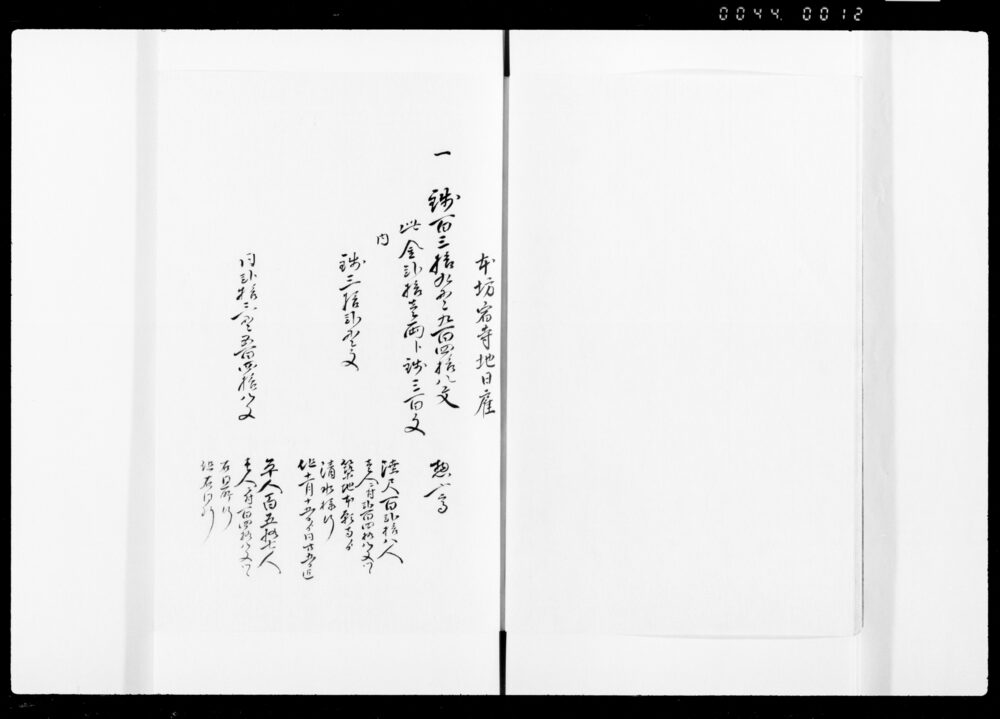 0044. 0012
本坊宿寺地日雇
一 銭百三拾九貫九百四拾八文 惣高
此金弐拾壱両ト銭三百文
内
銭三拾弐貫文
陸尺百弐拾八人
壱人ニ付弐百四拾八文ツヽ
築地本願寺ゟ
清水様行
但十一月十五日ゟ同廿五日迄
同弐拾三貫五百四拾八文
平人百五拾七人
壱人ニ付百四拾八文ツヽ
右同所行
但右同断